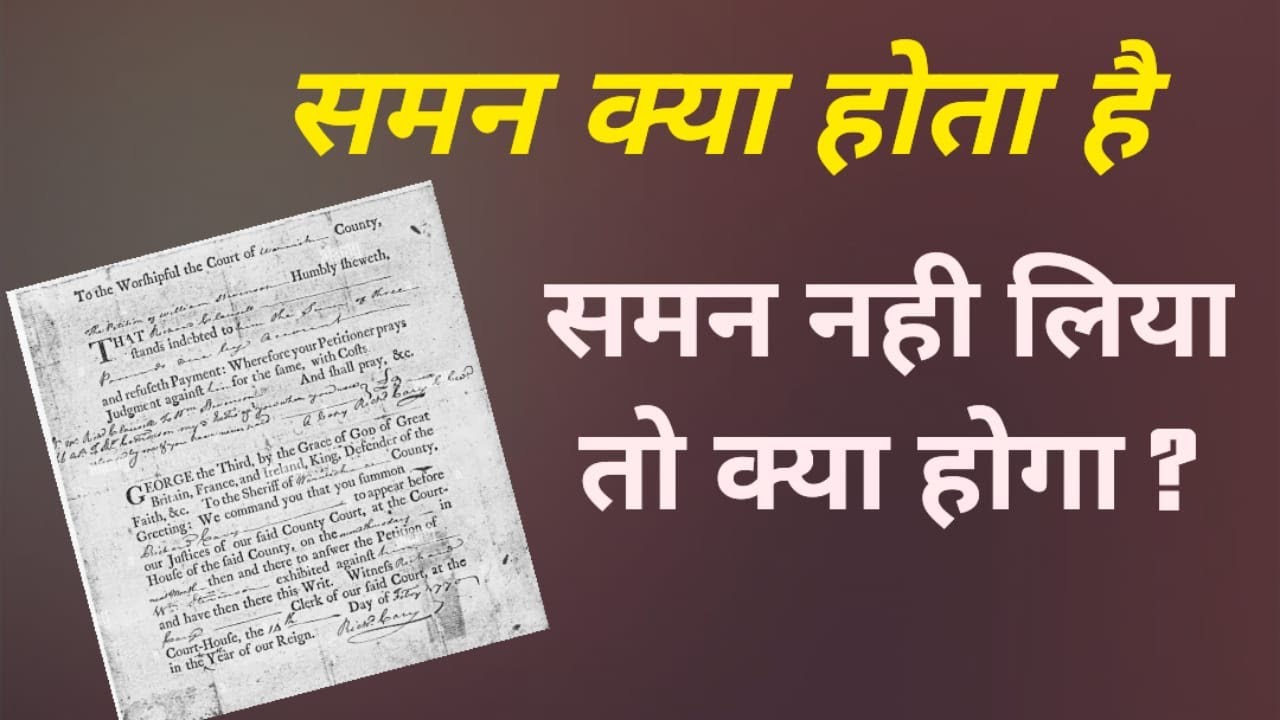 समन क्या होता है
समन नही लिया
तो क्या होगा ?
To the Worſhipful the Court of County,
Humbly ſheweth,
THAT
ſtands indebted to
and refuſeth Payment: Wherefore your Petitioner prays
Judgment againſt him for the ſame, with Coſts.
And ſhall pray, &c.
GEORGE the Third, by the Grace of GOD of Great
Britain, France, and Ireland, King, Defender of the
Faith, &c. To the Sheriff of County,
Greeting: We command you that you ſummon
to appear before
our Juſtices of our ſaid County Court, at the Court-
Houſe of the ſaid County, on the in
then and there to anſwer the Petition of
exhibited againſt
and have then there this Writ. Witneſs Richard
Clerk of our ſaid Court, at the
Court-Houſe, the Day of
in the Year of our Reign.